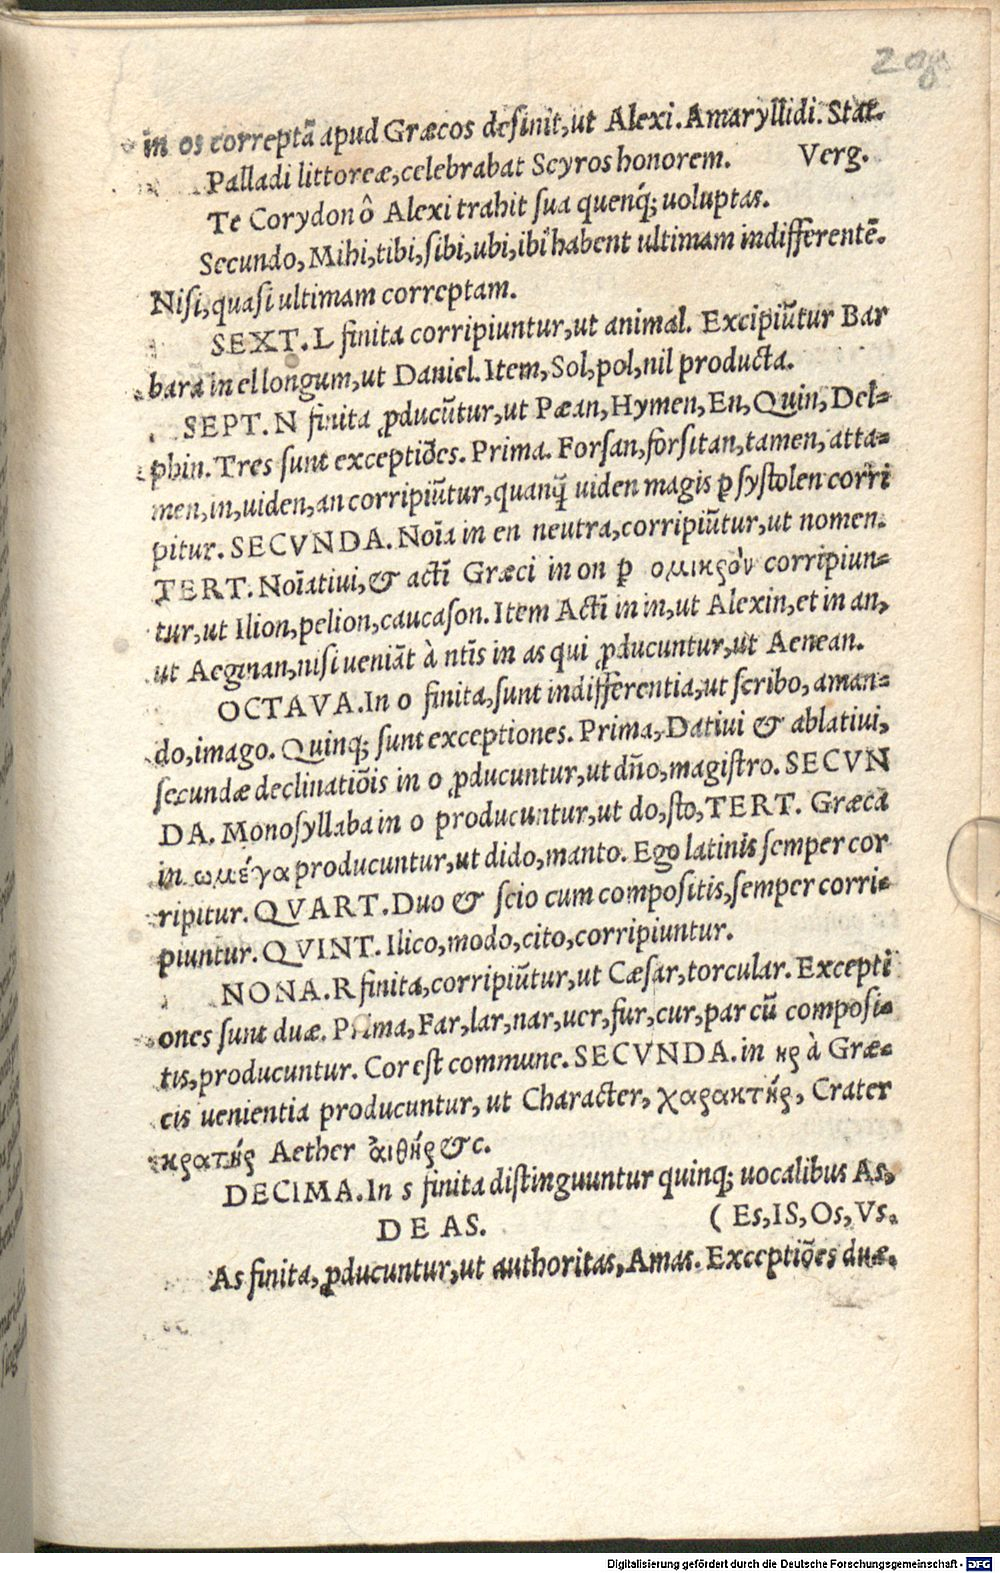 208
in os correptā apud Græcos desinit, ut Alexi. Amaryllidi. Stat.
Palladi littoreæ, celebrabat Scyros honorem. Verg.
Te Corydon ô Alexi trahit sua quenq; uoluptas.
Secundo, Mihi, tibi, sibi, ubi, ibi habent ultimam indifferentē.
Nisi, quasi ultimam correptam.
SEXT. L finita corripiuntur, ut animal. Excipiūtur Bar
bara in el longum, ut Daniel. Item, Sol, pol, nil producta.
SEPT. N finita ꝓducūtur, ut Pæan, Hymen, En, Quin, Del=
phin. Tres sunt exceptiões. Prima. Forsan, forsitan, tamen, atta=
men, in, uiden, an corripiūtur, quanq̄ uiden magis ꝑ systolen corri
pitur. SECVNDA. Noīa in en neutra, corripiūtur, ut nomen.
TERT. Noīatiui, & actī Græci in on ꝑ ομικρὸν corripiun=
tur, ut Ilion, pelion, caucason. Item Actī in in, ut Alexin, et in an,
ut Aeginan, nisi ueniāt à ntīs in as qui ꝓducuntur, ut Aenean.
OCTAVA. In o finita, sunt indifferentia, ut scribo, aman=
do, imago. Quinq; sunt exceptiones. Prima, Datiui & ablatiui,
secundæ declinatiōis in o ꝓducuntur, ut dño, magistro. SECVN
DA. Monosyllaba in o producuntur, ut do, sto, TERT. Græca
in ωμέγα producuntur, ut dido, manto. Ego latinis semper cor
ripitur. QVART. Duo & scio cum compositis, semper corri=
piuntur. QVINT. Ilico, modo, cito, corripiuntur.
NONA. R finita, corripiūtur, ut Cæsar, torcular. Excepti
ones sunt duæ. Prima, Far, lar, nar, uer, fur, cur, par cū composi=
tis, producuntur. Cor est commune. SECVNDA. in ηρ à Græ=
cis uenientia producuntur, ut Character, χαρακτήρ, Crater
κρατήρ Aether ἀιθήρ &c.
DECIMA. In s finita distinguuntur quinq; uocalibus As,
DE AS. ( Es, IS, Os, Vs.
As finita, ꝓducuntur, ut authoritas, Amas. Exceptiões duæ.
Digitalisierung gefördert durch die Deutsche Forschungsgemeinschaft - DFG